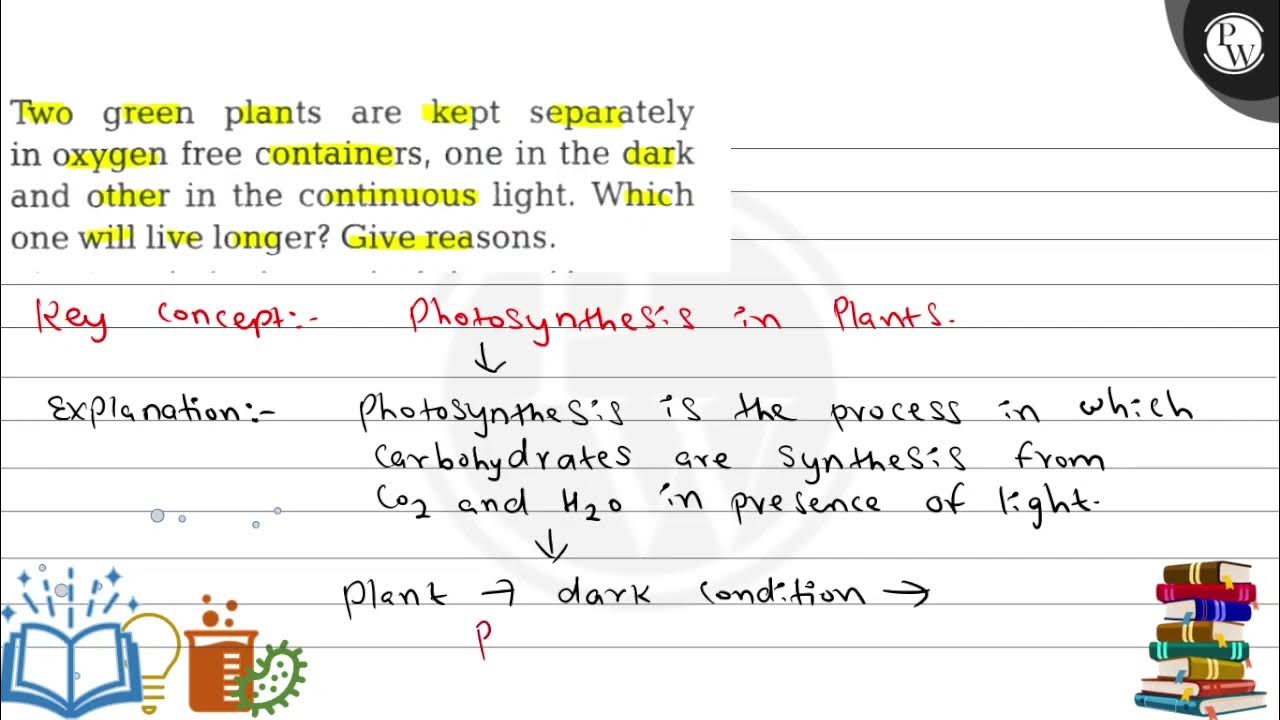 PW
Two green plants are kept separately
in oxygen free containers, one in the dark
and other in the continuous light. Which
one will live longer? Give reasons.
Key concept:- Photosynthesis in Plants.
↓
Explanation:- Photosynthesis is the process in which
carbohydrates are synthesis from
CO2 and H2O in presence of light.
↓
plant → dark condition →
P